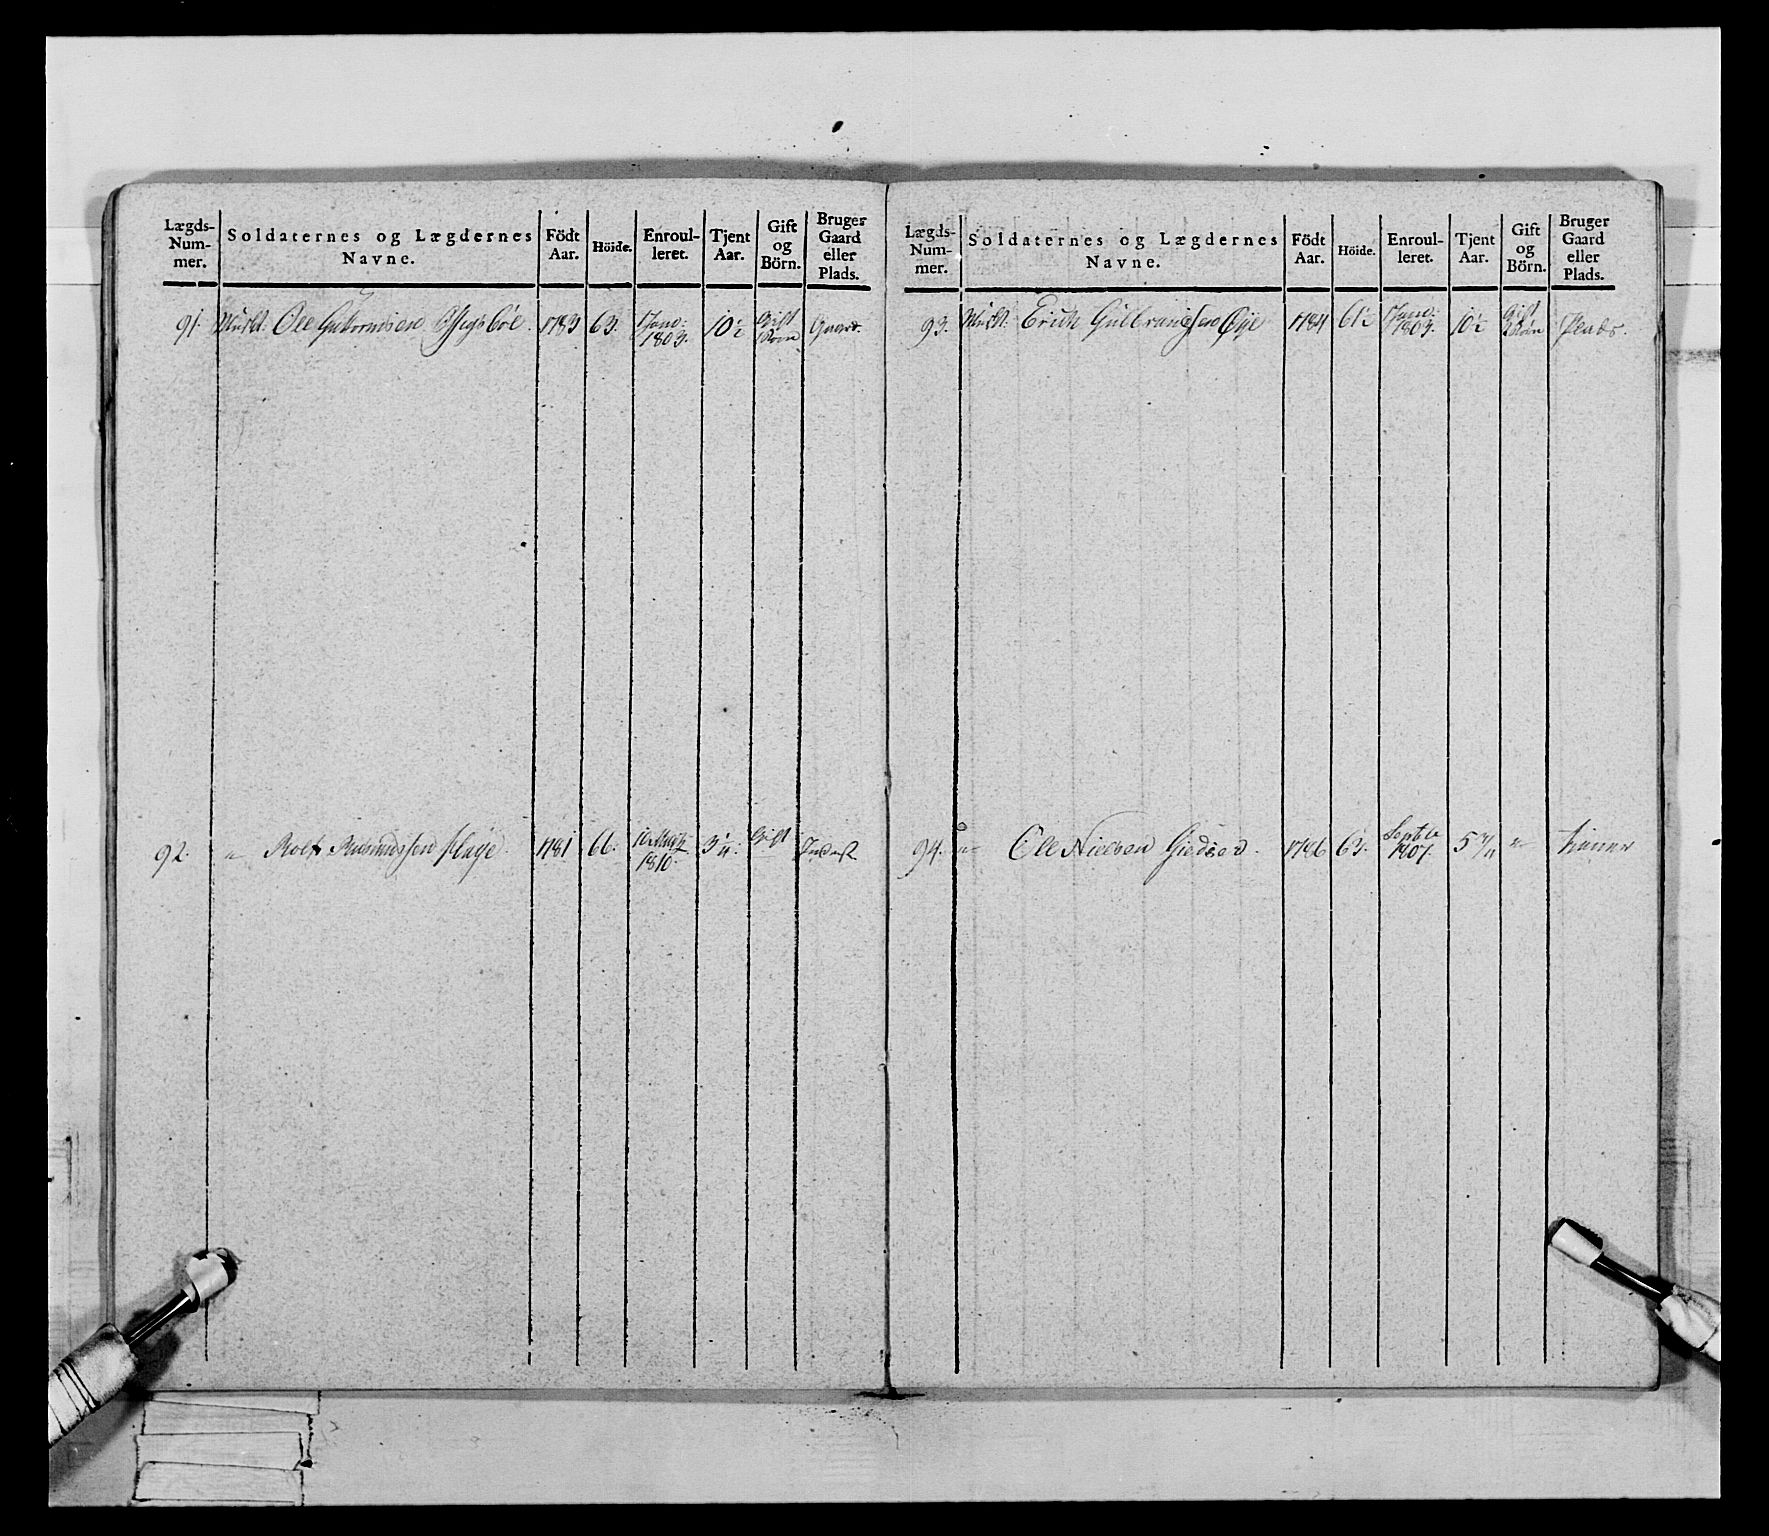 Lægds-
Num-
mer.
Soldaternes og Lægdernes
Navne.
Födt
Aar.
Höide.
Enroul-
leret.
Tjent
Aar.
Gift
og
Börn.
Bruger
Gaard
eller
Plads.
91. Muskt. Ole 1783 63. 1 Janu: 1803. 10½ Gift Gaard.
92. " Rolf Rasmussen 1781 66. 1810. Gift
Lægds-
Num-
mer.
Soldaternes og Lægdernes
Navne.
Födt
Aar.
Höide.
Enroul-
leret.
Tjent
Aar.
Gift
og
Börn.
Bruger
Gaard
eller
Plads.
93. Muskt. Erich Gulbrandsen Øye 1784 61½ 1 Janu: 1803. 10½ Gift Plads.
94. " Ole Nielsen 1786 63. 1807. " tiener